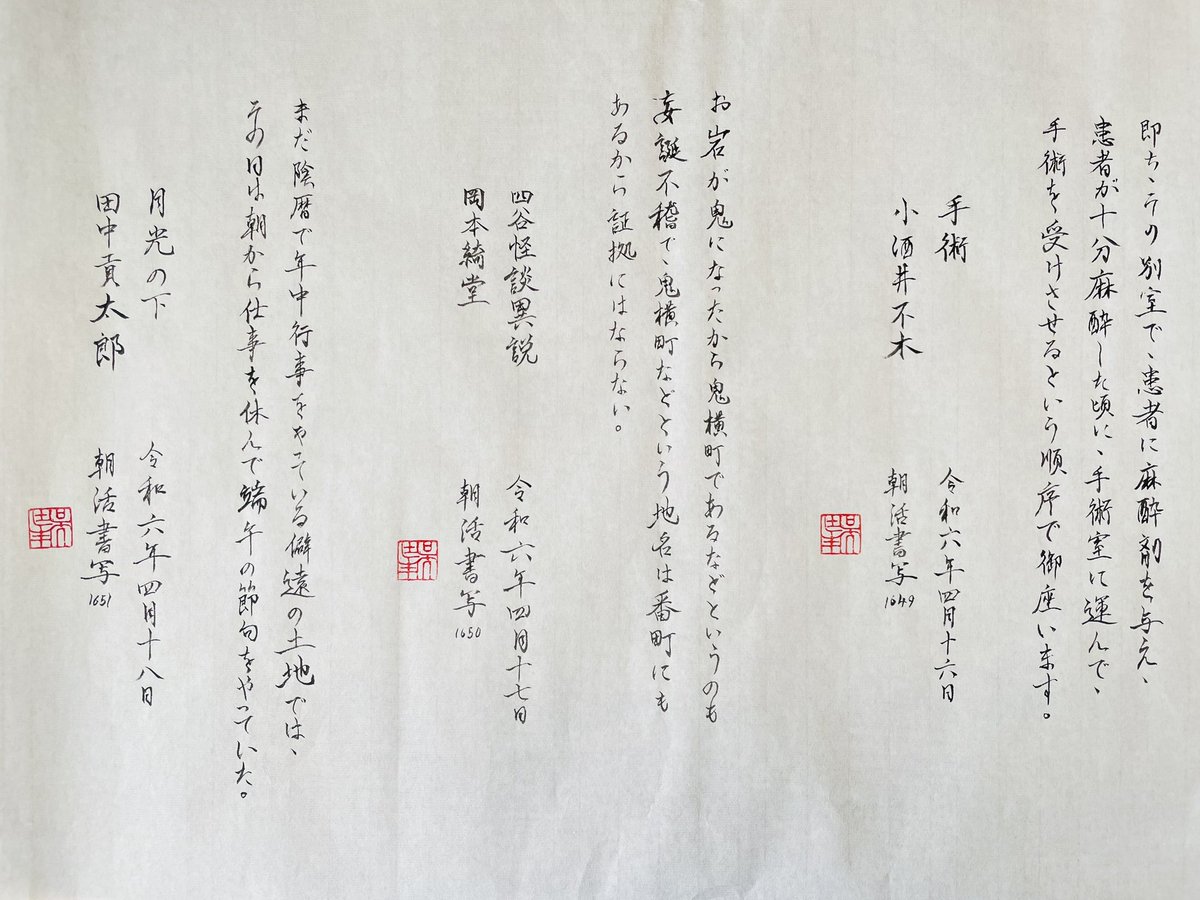 即ち、あの別室で、患者に麻酔剤を与え、
患者が十分麻酔した頃に、手術室に運んで、
手術を受けさせるという順序で御座います。
手術
小酒井不木
令和六年四月十六日
朝活書写
1649
お岩が鬼になったから鬼横町であるなどというのも
妄誕不稽で、鬼横町などという地名は番町にも
あるから証拠にはならない。
四谷怪談異説
岡本綺堂
令和六年四月十七日
朝活書写
1650
まだ陰暦で年中行事をやっている僻遠の土地では、
その日は朝から仕事を休んで端午の節句をやっていた。
月光の下
田中貢太郎
令和六年四月十八日
朝活書写
1651